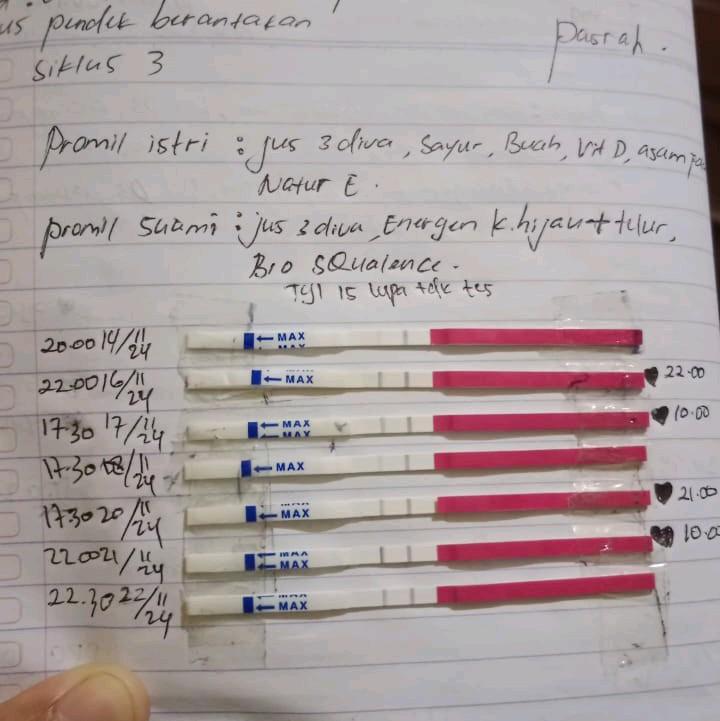 us pendek berantakan
Pasrah.
Siklus 3
Promil istri : jus 3 diva, Sayur, Buah, Vit D, asam
Natur E.
promil Suami : jus 3 diva, Energen k.hijau + telur,
Bio SQualence.
Tgl 15 lupa tdk tes
20.00 14/11/24 MAX
22.00 16/11/24 MAX 22.00
17.30 17/11/24 MAX 10.00
17.30 18/11/24 MAX
17.30 20/11/24 MAX 21.00
22.00 21/11/24 MAX 10.0
22.30 22/11/24 MAX